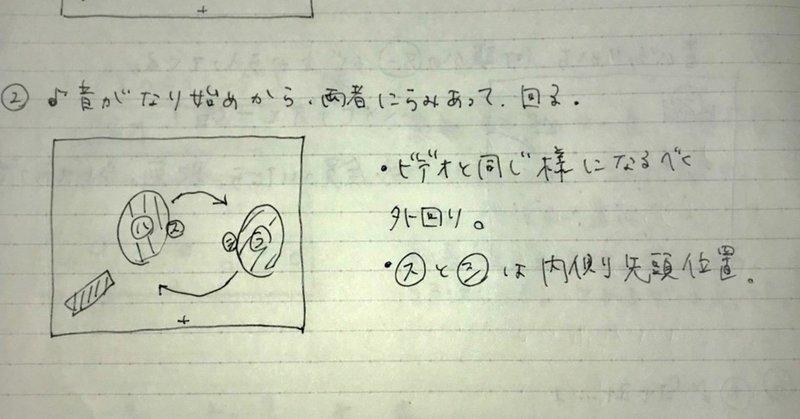 ② ♪音がなり始めから、両者にらみあって、回る。
ハ ス シ ラ
・ビデオと同じ様になるべく
外回り。
・スとシは内側り先頭位置。